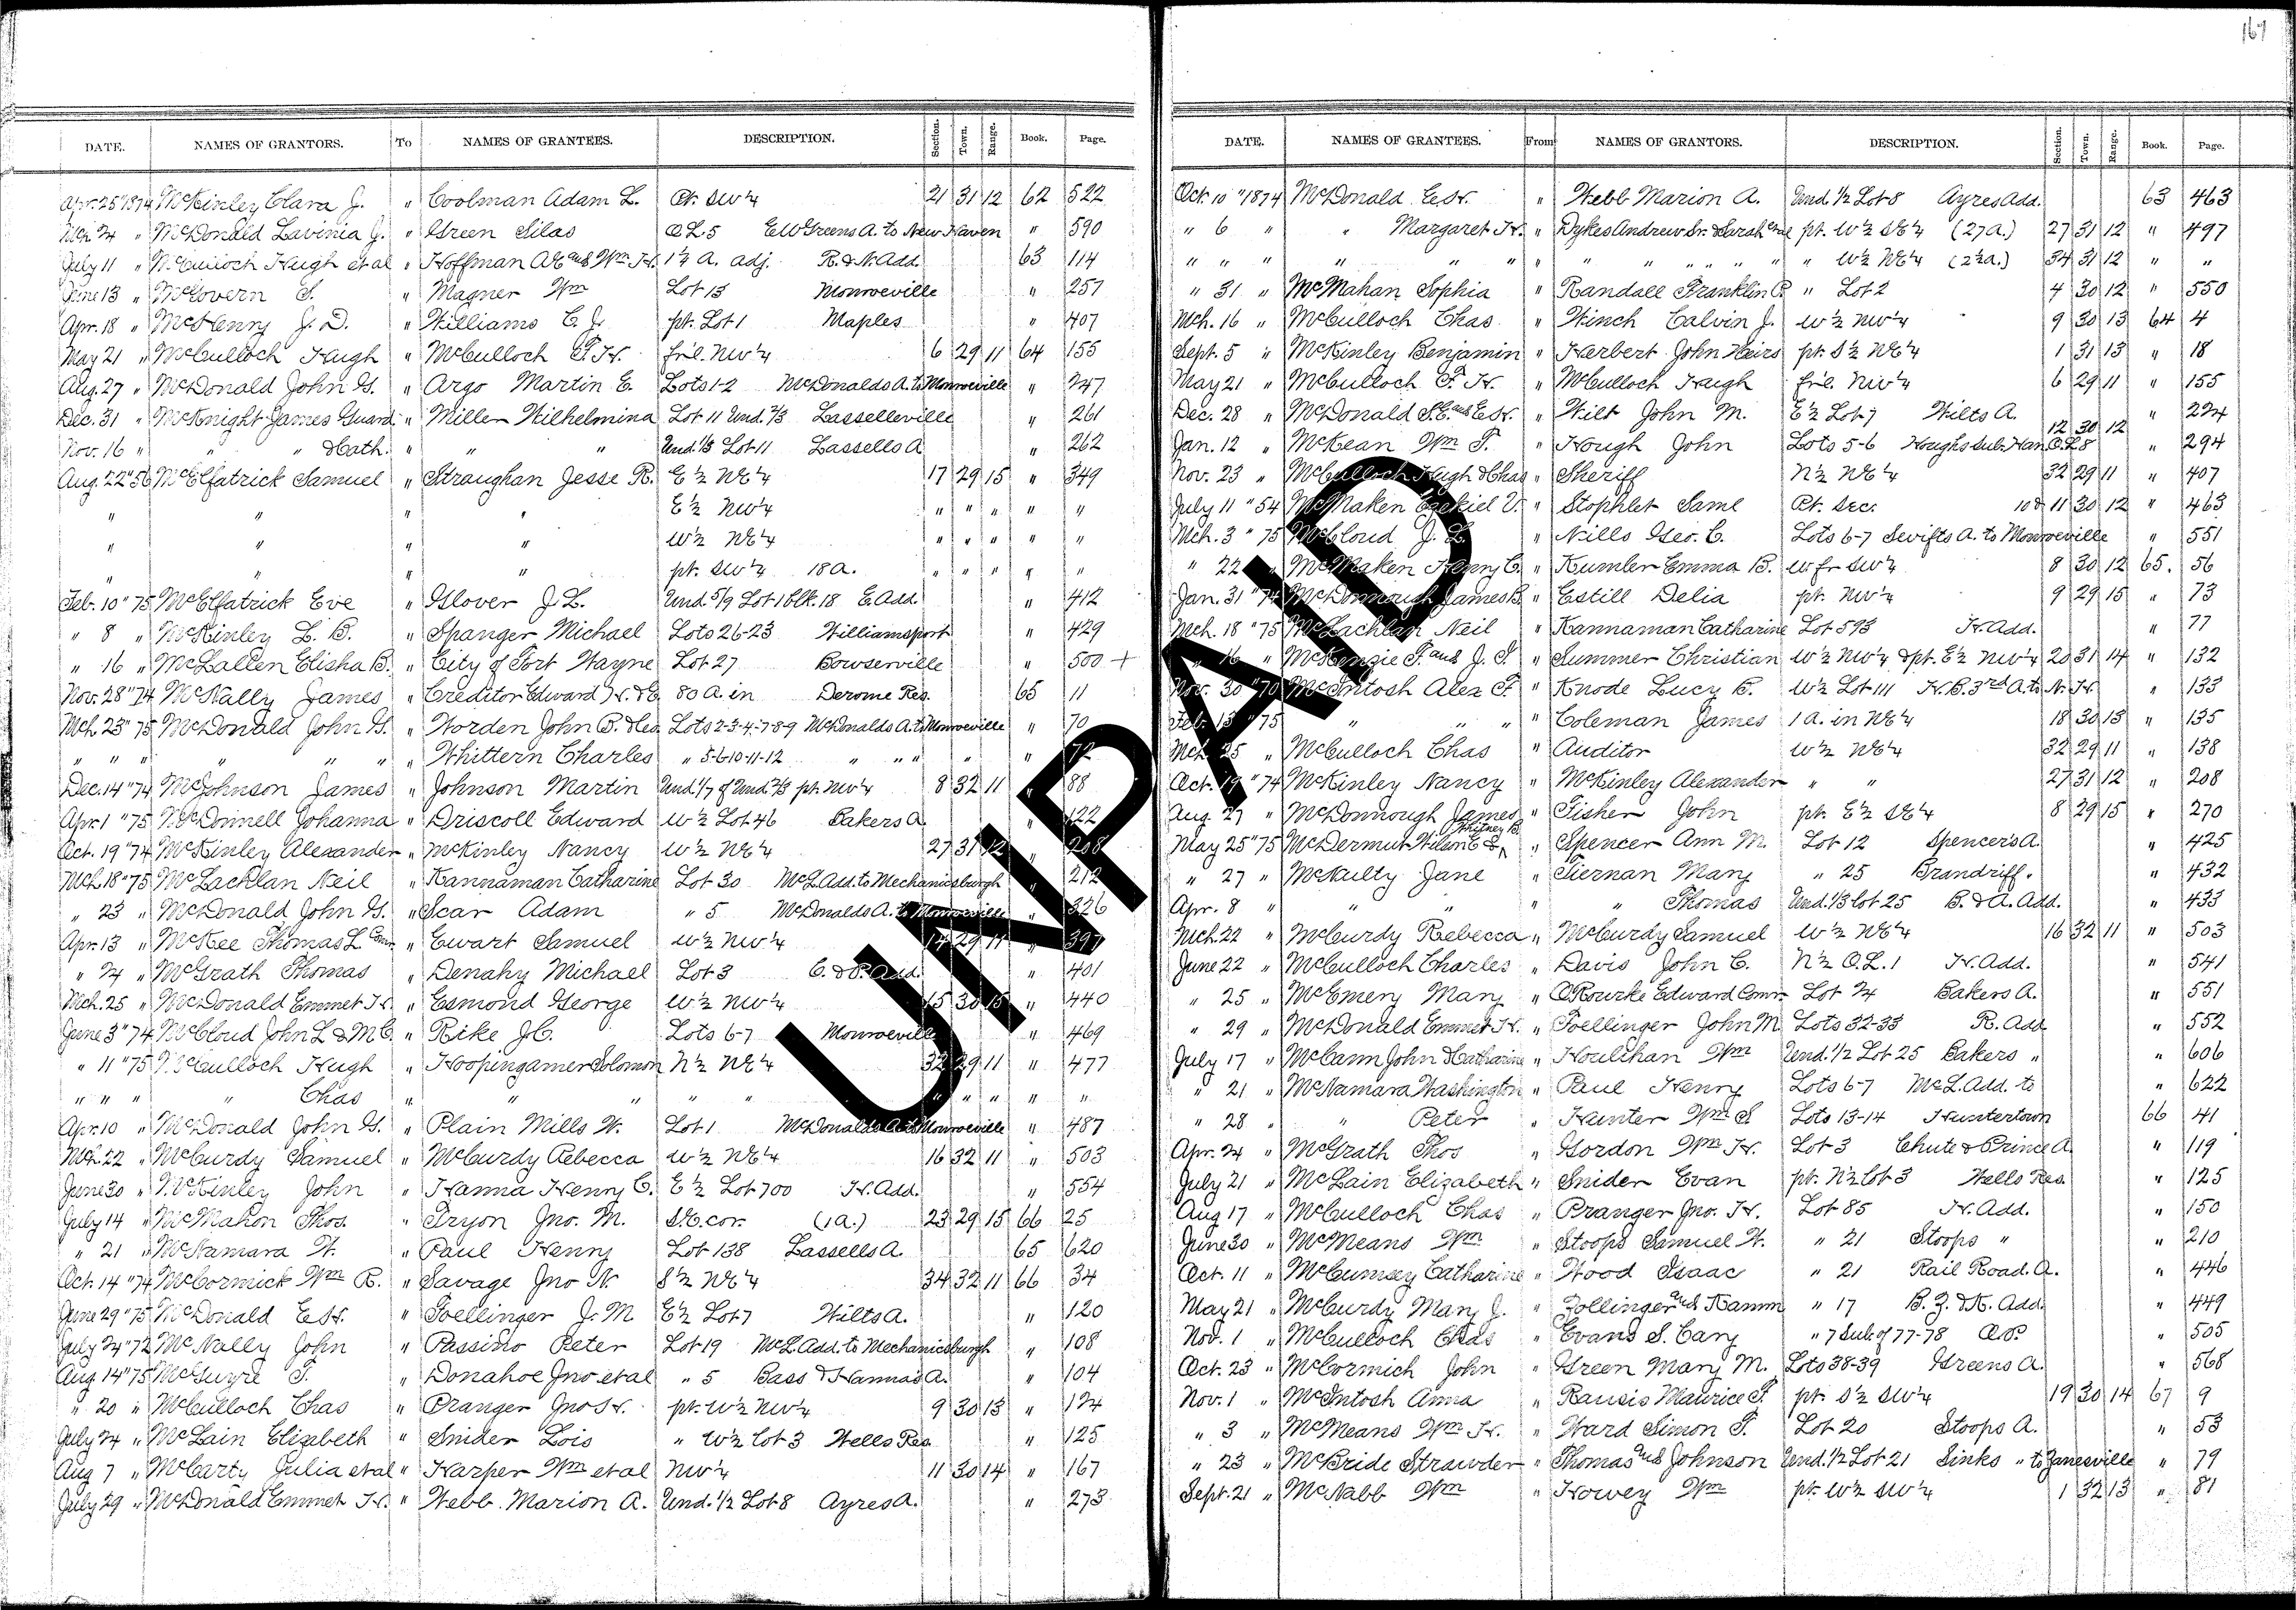 167
DATE. NAMES OF GRANTORS. To NAMES OF GRANTEES. DESCRIPTION. Section. Town. Range. Book. Page.
Apr. 25 "1874 McKinley Clara J. " Coolman Adam L. Pt. SW¼ 21 31 12 62 522
Mch 24 " McDonald Lavinia J. " Green Silas O L 5 E W Greens A. to New Haven " 590
July 11 " McCulloch Hugh et al " Hoffman A E and Wm H. 1¼ A. adj. R. & N. Add. 63 114
June 13 " McGovern T. " Magner Wm Lot 13 Monroeville " 257
Apr. 18 " McHenry J. D. " Williams C. J. pt. Lot 1 Maples " 407
May 21 " McCulloch Hugh " McCulloch F. H. fr'l. NW¼ 6 29 11 64 155
Aug. 27 " McDonald John G. " Argo Martin E. Lots 1-2 McDonalds A. to Monroeville " 247
Dec. 31 " McKnight James Guard. " Miller Wilhelmina Lot 11 Und. 2/3 Lasselleville " 261
Nov. 16 " " Hath. " " " Und 1/3 Lot 11 Lassells A " 262
Aug. 22 "56 McElfatrick Samuel " Straughan Jesse R. E½ NE¼ 17 29 15 " 349
" " " " E½ NW¼ " " " " "
" " " " W½ NE¼ " " " " "
" " " " pt. SW¼ 18 A. " " " " "
Feb. 10 "75 McElfatrick Eve " Glover J. L. Und. 5/9 Lot 1 Blk. 18 E. Add. " 412
" 8 " McKinley L. B. " Spanger Michael Lots 26-23 Williamsport " 429
" 16 " McLallen Elisha B. " City of Fort Wayne Lot 27 Bowserville " 500 +
Nov. 28 "74 McNally James " Creditor Edward H. & E 80 A. in Derome Res. 65 11
Mch 23 "75 McDonald John G. " Worden John B. & Geo. Lots 2-3-4-7-8-9 McDonalds A. to Monroeville " 70
" " " " " " " Whittern Charles " 5-6-10-11-12 " " " " " 72
Dec. 14 "74 McJohnson James " Johnson Martin Und 1/7 of Und. 2/3 pt. NW¼ 8 32 11 " 88
Apr. 1 "75 McDonnell Johanna " Driscoll Edward W½ Lot 46 Bakers A " 122
Oct. 19 "74 McKinley Alexander " McKinley Nancy W½ NE¼ 27 31 12 " 208
Mch 18 "75 McLachlan Neil " Hannaman Catharine Lot 30 McL. Add. to Mechanicsburgh " 212
" 23 " McDonald John G. " Scar Adam " 5 McDonalds A. to Monroeville " 326
Apr. 13 " McKee Thomas L. Comr. " Ewart Samuel W½ NW¼ 14 29 11 " 397
" 24 " McGrath Thomas " Denahy Michael Lot 3 C. & P. Add. " 401
Mch. 25 " McDonald Emmet H. " Esmond George W½ NW¼ 15 30 15 " 440
June 3 "74 McCloud John L & M C " Rike J. C. Lots 6-7 Monroeville " 469
" 11 "75 McCulloch Hugh " Hoopingarner Solomon N½ NE¼ 32 29 11 " 477
" " " " Chas " " " " " " " " " "
Apr. 10 " McDonald John G. " Plain Mills W. Lot 1 McDonalds A. to Monroeville " 487
Mch. 22 " McCurdy Samuel " McCurdy Rebecca W½ NE¼ 16 32 11 " 503
June 30 " McKinley John " Hanna Henry C. E½ Lot 700 H. Add. " 554
July 14 " McMahon Thos. " Tryon Jno. M. SE. cor. (1 A.) 23 29 15 66 25
" 21 " McNamara W. " Paul Henry Lot 138 Lassells A 65 620
Oct. 14 "74 McCormick Wm R. " Savage Jno N. S½ NE¼ 34 32 11 66 34
June 29 "75 McDonald E H. " Foellinger J. M E½ Lot 7 Wilts A. " 120
July 24 "72 McNally John " Passino Peter Lot 19 McL. Add. to Mechanicsburgh " 108
Aug 14 "75 McGuyre T. " Donahoe Jno et al " 5 Bass & Hannas A. " 104
" 20 " McCulloch Chas " Pranger Jno H. pt. W½ NW¼ 9 30 13 " 124
July 24 " McLain Elizabeth " Snider Lois " W½ Lot 3 Wells Res. " 125
Aug 7 " McCarty Julia et al " Harper Wm et al NW¼ 11 30 14 " 167
July 29 " McDonald Emmet H. " Webb Marion A. Und. 1/2 Lot 8 Ayres A. " 273
DATE. NAMES OF GRANTEES. From NAMES OF GRANTORS. DESCRIPTION. Section. Town. Range. Book. Page.
Oct. 10 "1874 McDonald E. H. " Webb Marion A. Und. 1/2 Lot 8 Ayres Add. 63 463
" 6 " " Margaret H. " Dykes Andrew Sr. & Sarah pt. W½ SE¼ (27 A.) 27 31 12 " 497
" " " " " " " " " " " W½ NE¼ (2½ A.) 34 31 12 " "
" 31 " McMahan Sophia " Randall Franklin P. " Lot 2 4 30 12 " 550
Mch. 16 " McCulloch Chas " Winch Calvin J. W½ NW¼ 9 30 13 64 4
Sept. 5 " McKinley Benjamin " Herbert John Heirs pt. S½ NE¼ 1 31 13 " 18
May 21 " McCulloch F. H. " McCulloch Hugh fr'l. NW¼ 6 29 11 " 155
Dec. 28 " McDonald S. E. and E. H. " Wilt John M. E½ Lot 7 Wilts A. " 224
Jan. 12 " McKean Wm T. " Hough John Lots 5-6 Houghs Sub. Han. O. L 8 12 30 12 " 294
Nov. 23 " McCulloch Hugh & Chas " Sheriff N½ NE¼ 32 29 11 " 407
July 11 "54 McMaken Ezekiel V. " Stophlet Saml Pt. Sec. 10 & 11 30 12 " 463
Mch. 3 "75 McCloud J. L. " Nills Geo. C. Lots 6-7 Swifts A. to Monroeville " 551
" 22 McMaken Henry C. " Kumler Emma B. W fr SW¼ 8 30 12 65. 56
Jan. 31 "74 McDonnough James B. " Estill Delia pt. NW¼ 9 29 15 " 73
Mch. 18 "75 McLachlan Neil " Hannaman Catharine Lot 593 H. Add. " 77
" 16 " McKenzie F. and J. S. " Summer Christian W½ NW¼ & pt. E½ NW¼ 20 31 14 " 132
Nov. 30 "70 McIntosh Alex F. " Knode Lucy B. W½ Lot 111 H. B. 3rd A. to N. H. " 133
Feb. 13 "75 " " " " Coleman James 1 A. in NE¼ 18 30 13 " 135
Mch. 25 " McCulloch Chas " Auditor W½ NE¼ 32 29 11 " 138
Oct. 19 "74 McKinley Nancy " McKinley Alexander " " 27 31 12 " 208
Aug. 27 " McDonnough James " Fisher John pt. E½ SE¼ 8 29 15 " 270
May 25 "75 McDermut Wilson E & Whitney B. " Spencer Ann M. Lot 12 Spencers A. " 425
" 27 " McNulty Jane " Tiernan Mary " 25 Brandriff. " 432
Apr. 8 " " " " " Thomas Und. 1/3 Lot 25 B. & A. Add. " 433
Mch. 22 " McCurdy Rebecca " McCurdy Samuel W½ NE¼ 16 32 11 " 503
June 22 " McCulloch Charles " Davis John C. N½ O. L. 1 H. Add. " 541
" 25 " McEmery Mary " O'Rourke Edward Comr. Lot 24 Bakers A. " 551
" 29 " McDonald Emmet H. " Foellinger John M. Lots 32-33 R. Add " 552
July 17 " McCann John & Catharine " Houlihan Wm Und. 1/2 Lot 25 Bakers " " 606
" 21 " McNamara Washington " Paul Henry Lots 6-7 McL. Add. to " 622
" 28 " " Peter " Hunter Wm S Lots 13-14 Huntertown 66 41
Apr. 24 " McGrath Thos " Gordon Wm H. Lot 3 Chute & Prince A " 119
July 21 " McLain Elizabeth " Snider Evan pt. N½ Lot 3 Wells Res. " 125
Aug 17 " McCulloch Chas " Pranger Jno. H. Lot 85 H. Add. " 150
June 30 " McMeans Wm " Stoops Samuel W. " 21 Stoops " " 210
Oct. 11 " McCumsey Catharine " Wood Isaac " 21 Rail Road. A. " 446
May 21 " McCurdy Mary J. " Zollinger and Hamm " 17 B. Z. & H. Add. " 449
Nov. 1 " McCulloch Chas " Evans S. Cary " 7 Sub of 77-78 O. P. " 505
Oct. 23 " McCormich John " Green Mary M. Lots 38-39 Greens A. " 568
Nov. 1 " McIntosh Anna " Rausis Maurice F. pt. S½ SW¼ 19 30 14 67 9
" 3 " McMeans Wm H. " Ward Simon F. Lot 20 Stoops A. " 53
" 23 " McBride Strawder " Thomas and Johnson Und. 1/2 Lot 21 Links " to Zanesville " 79
Sept. 21 " McNabb Wm " Howey Wm pt. W½ SW¼ 1 32 13 " 81
UNPAID